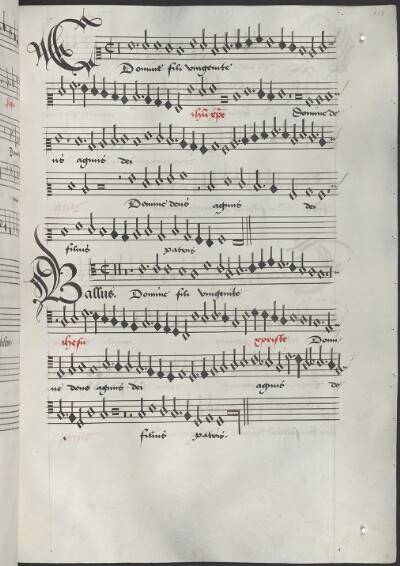 Domine fili unigenite
ihu xpe Domine de
us agnus dei
Domine deus agnus dei
filius patris
Bassus. Domine fili unigenite
ihesu xpriste Domi
ne deus agnus dei agnus de
filius patris.